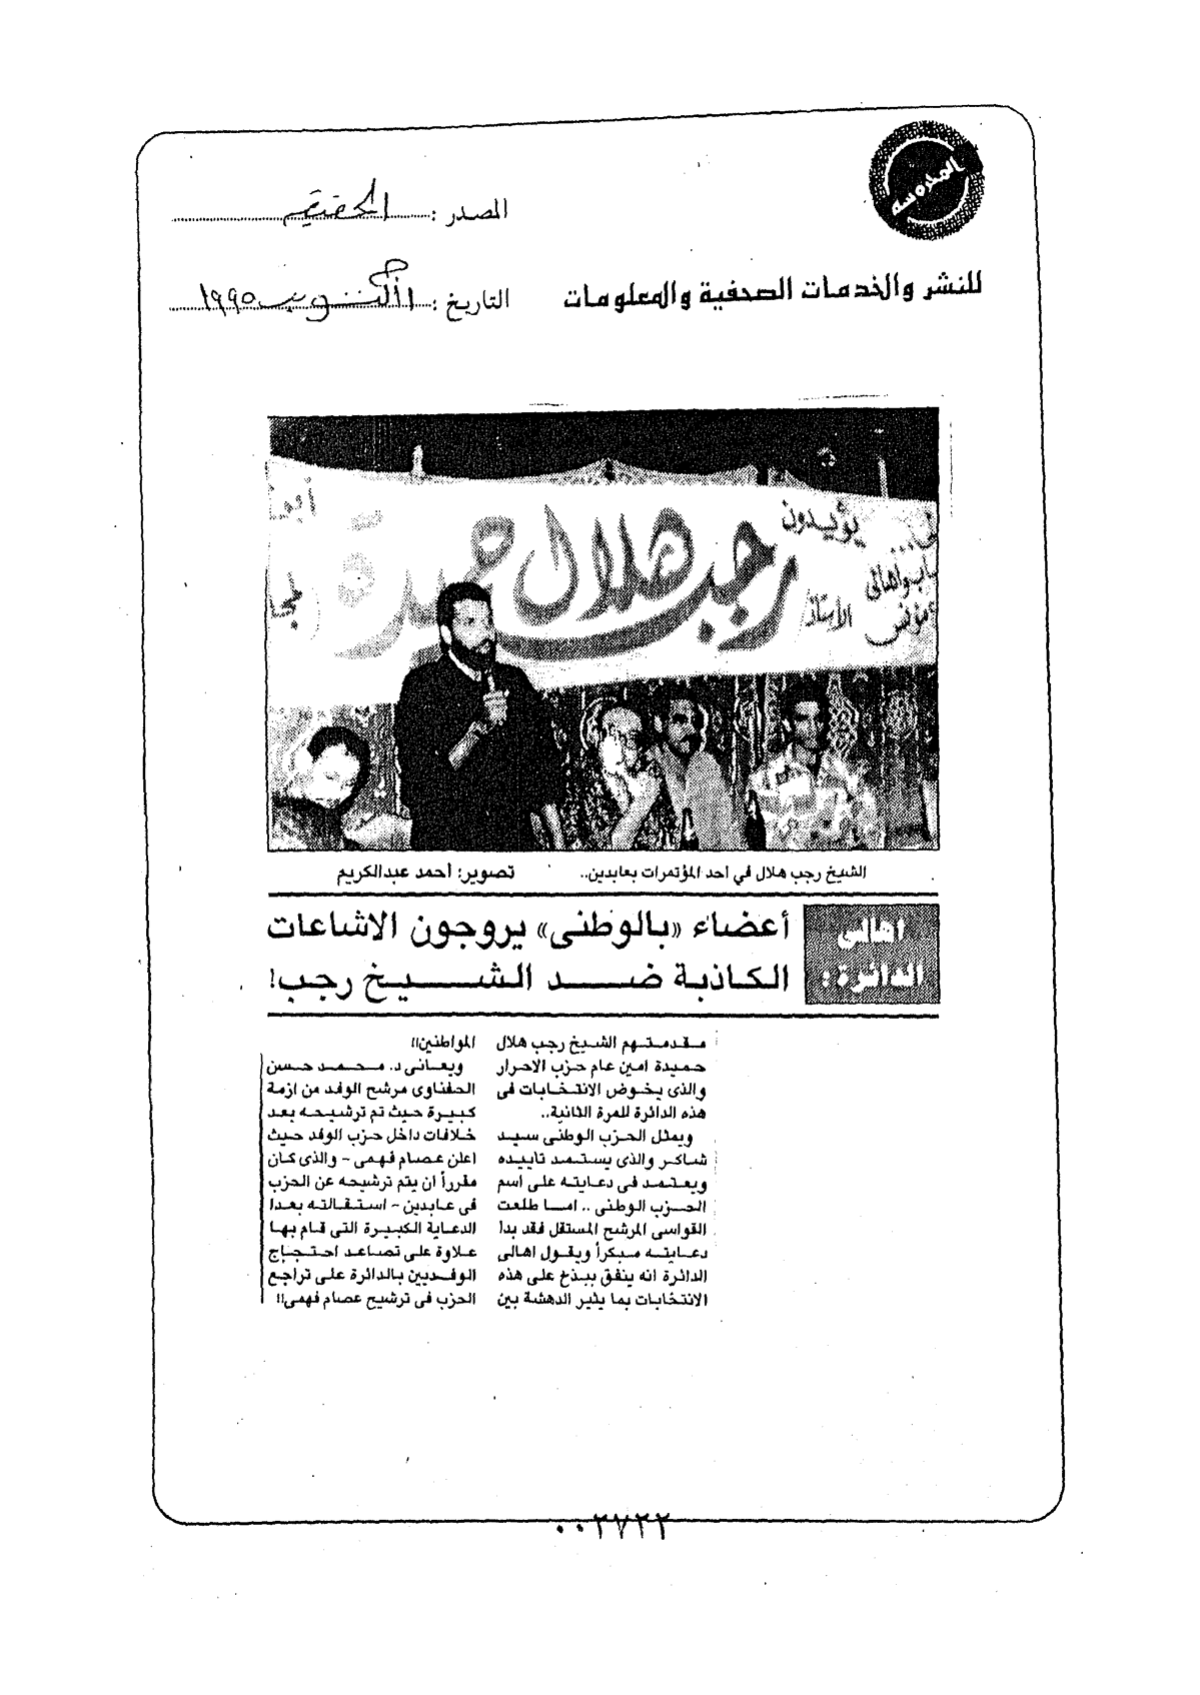 المحروسة
المصدر : الحقيقة
للنشر والخدمات الصحفية والمعلومات
التاريخ : أكتوبر ١٩٩٥
يؤيدون
رجب هلال حميدة
الأستاذ
الشيخ رجب هلال في احد المؤتمرات بعابدين..
تصوير: أحمد عبدالكريم
اهالى
الدائرة:
أعضاء «بالوطنى» يروجون الاشاعات
الكاذبة ضد الشيخ رجب!
مقدمتهم الشيخ رجب هلال
حميدة امين عام حزب الاحرار
والذى يخوض الانتخابات فى
هذه الدائرة للمرة الثانية..
ويمثل الحزب الوطنى سيد
شاكر والذى يستمد تاييده
ويعتمد فى دعايته على اسم
الحزب الوطنى .. اما طلعت
القواسى المرشح المستقل فقد بدا
دعايته مبكرأ ويقول اهالى
الدائرة انه ينفق ببذخ على هذه
الانتخابات بما يثير الدهشة بين
المواطنين!!
ويعانى د. محمد حسن
الحفناوى مرشح الوفد من ازمة
كبيرة حيث تم ترشيحه بعد
خلافات داخل حزب الوفد حيث
اعلن عصام فهمى - والذى كان
مقررأ ان يتم ترشيحه عن الحزب
فى عابدين - استقالته بعدا
الدعاية الكبيرة التى قام بها
علاوة على تصاعد احتجاج
الوفديين بالدائرة على تراجع
الحزب فى ترشيح عصام فهمى!!
٠٠٢٧٢٢